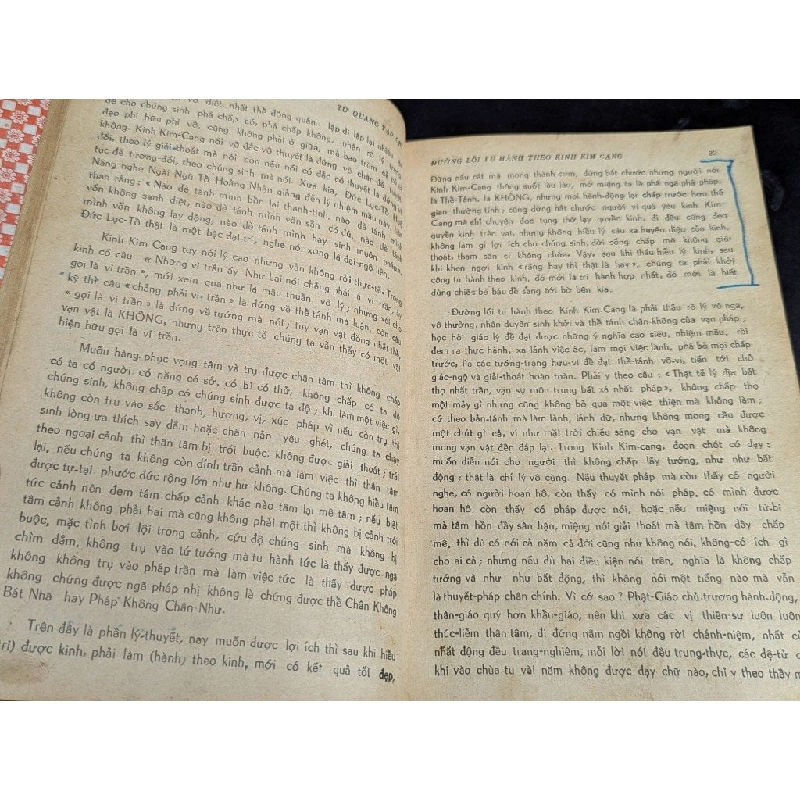 20 QUANG TẠO
đề cho chúng sinh phá chấp có, phá chấp không,
đẹp phi hữu phi vô, cũng không phải ở giữa, mà bao
không. Kinh Kim-Cang nói vô đắc vô thuyết là đúng và chấp
đối, theo lý giải-thoát mà nói
tục đã tương-đối, theo chúng sinh mà nói. Xưa kia, Đức Lục-Tổ
Năng nghe Ngài Ngũ Tổ Hoằng Nhẫn giảng đến lý nhiệm mầu này
than rằng: « Nào dè tánh mình bổn lai thanh-tịnh, nào dè tánh
vốn không sanh diệt, nào dè tánh mình vốn sẵn có đủ, nào dè
mình vốn không lay động, nào dè tánh mình hay sinh muôn
Đức Lục-Tổ thật là một bậc đạt
Kinh Kim-Cang tuy nói lý cao nhưng vẫn không rời thực-tế. Trong
kinh có câu « Những vi trần ấy Như Lai nói chẳng phải là vi trần
gọi là vi trần », mới xem qua như là mâu thuẫn vô lý; nhưng
kỹ thì câu « chẳng phải vi trần » là đứng về thể tánh mà
« gọi là vi trần » là đứng về tướng mà nói; tuy vạn vật
vạn vật là KHÔNG, nhưng trên thực tế chúng ta vẫn thấy có một
hiện hữu gọi là vi trần.
Muốn hàng phục vọng tâm và trụ được chân tâm thì không chấp
có ta có người, có năng có sở, có bỉ có thử, không chấp có ta độ
chúng sinh, không chấp có chúng sinh được ta độ; khi làm một việc gì
không còn trụ vào sắc, thanh, hương, vị, xúc, pháp vì nếu còn trụ thì
sinh lòng ưa thích say đắm hoặc chán nản yêu ghét, chúng ta chạy
theo ngoại cảnh thì thân tâm bị trói buộc không được giải thoát; trái
lại, nếu chúng ta không còn dính trần cảnh mà làm việc thì thân tâm
được tự-tại, phước đức rộng lớn như hư không. Chúng ta không hiểu tâm
tức cảnh nên đem tâm chấp cảnh khác nào tâm lại mê tâm; nếu biết
tâm cảnh không phải hai mà cũng không phải một thì không bị cảnh trói
buộc, mặc tình bơi lội trong cảnh, cứu độ chúng sinh mà không bị
chìm đắm, không trụ vào lý tướng mà tu hành tức là thấy được ngã
không không trụ vào pháp trần mà làm việc tức là thấy được pháp
không chứng được ngã pháp nhị không là chứng được thể Chân Không
Bát Nhã hay Pháp Không Chân-Như.
Trên đây là phần lý-thuyết, nay muốn được lợi ích thì sau khi hiểu
(trì) được kinh, phải làm (hành) theo kinh, mới có kết quả tốt đẹp,
ĐƯỜNG LỐI TU HÀNH THEO KINH KIM CANG
Đừng nấu cát mà mong thành cơm, đừng bắt chước những người nói
Kinh Kim-Cang thông suốt làu làu, mở miệng ra là phá ngã phá pháp
là Thể-Tánh, là KHÔNG, nhưng mọi hành-động lại chấp trước hơn thế
gian thường tình; cũng đừng bắt chước người vì quá yêu kinh Kim-
Cang mà chỉ chuyên đọc tụng thờ lạy quyển kinh, đi đâu cũng đem
quyển kinh trân vật, nhưng không hiểu lý sâu xa huyền diệu của kinh,
không làm gì lợi ích cho chúng sinh, đời sống chấp mà không giải
thoát, tham sân si không chừa. Vậy, sau khi thấu hiểu lý kinh, sau
khi khen ngợi kinh « rằng hay thì thật là hay », chúng ta phải khởi
công tu hành theo kinh, đó mới là trì hành hợp nhất, đó mới là biết
dùng chiếc bè báu để sang tới bờ bên kia.
Đường lối tu hành theo Kinh Kim-Cang là phải thấu rõ lý vô ngã,
vô thường, nhân duyên sinh khởi và thể tánh chân-không của vạn pháp;
học hỏi giáo lý để đạt được những ý nghĩa cao siêu, nhiệm mầu, rồi
đem ra thực-hành, xa lánh việc ác, làm mọi việc lành, phá bỏ mọi chấp
trước, lìa các tướng-trạng hữu-vi để đạt thể-tánh vô-vi, tiến tới chỗ
giác-ngộ và giải-thoát hoàn toàn. Phải y theo câu: « Thật tế lý địa bất
thọ nhất trần, vạn sự môn trung bất xả nhất pháp », không chấp thọ
một mảy gì nhưng cũng không bỏ qua một việc thiện mà không làm;
cứ theo bản-tánh mà làm lành, lánh dữ, nhưng không mong cầu được
một chút gì cả, ví như mặt trời chiếu sáng cho vạn vật mà không
mong vạn vật đền đáp lại. Trong Kinh Kim-cang, đoạn chót có dạy:
muốn diễn nói cho người thì không chấp lấy tướng, như như bất
động; thật là chí lý vô cùng. Nếu thuyết pháp mà còn thấy có người
nghe, có người hoan hô, còn thấy có mình nói pháp, có mình được
hoan hô, còn thấy có pháp được nói, hoặc nếu miệng nói từ-bi
mà tâm hồn đầy sân hận, miệng nói giải thoát mà tâm hồn đầy chấp
mê, thì dù có nói cả năm cả đời cũng như không nói, không-có ích gì
cho ai cả; nhưng nếu đủ hai điều kiện nói trên, nghĩa là không chấp
tướng và như như bất động, thì không nói một tiếng nào mà vẫn
là thuyết-pháp chân chính. Vì cớ sao? Phật-Giáo chủ-trương hành-động,
thân-giáo quý hơn khẩu-giáo, nên khi xưa các vị thiền-sư luôn luôn
thúc-liễm thân tâm, đi đứng nằm ngồi không rời chánh-niệm, nhất cử
nhất động đều trang-nghiêm, mỗi lời nói đều trung-thực, các đệ-tử
khi vào chùa tu vài năm không được dạy chữ nào, chỉ y theo thầy